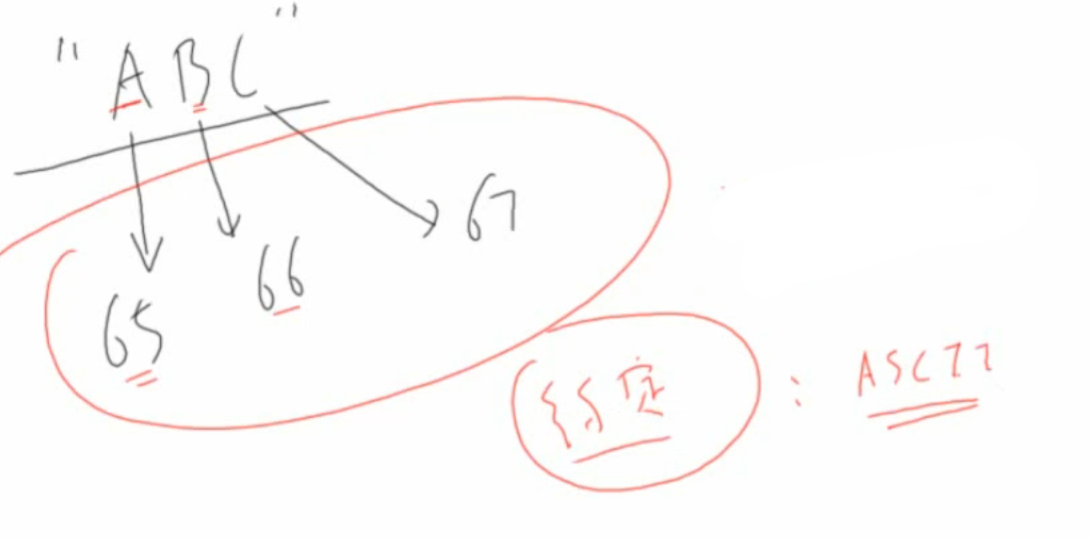 "ABC"
67
66
65
约定 : ASCII